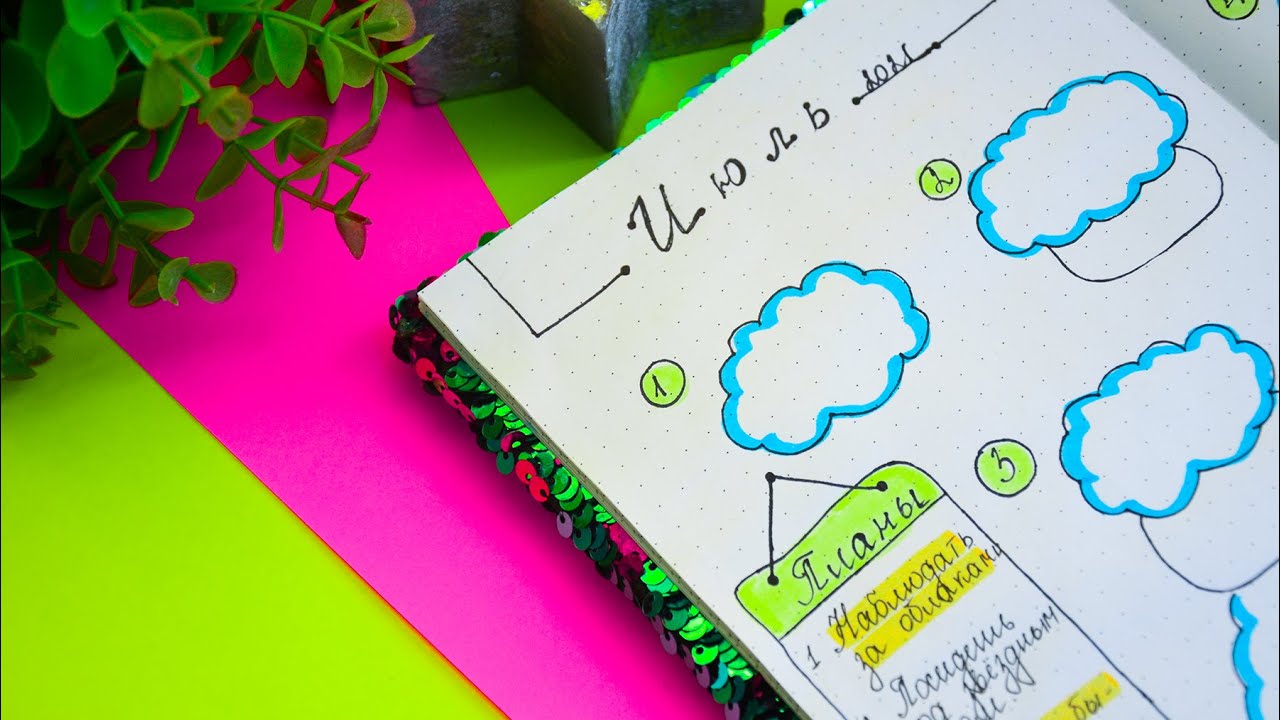 Июль 2021
1
2
3
Планы
1 Наблюдать
за облаками
Посидеть
под звёздным
бы-